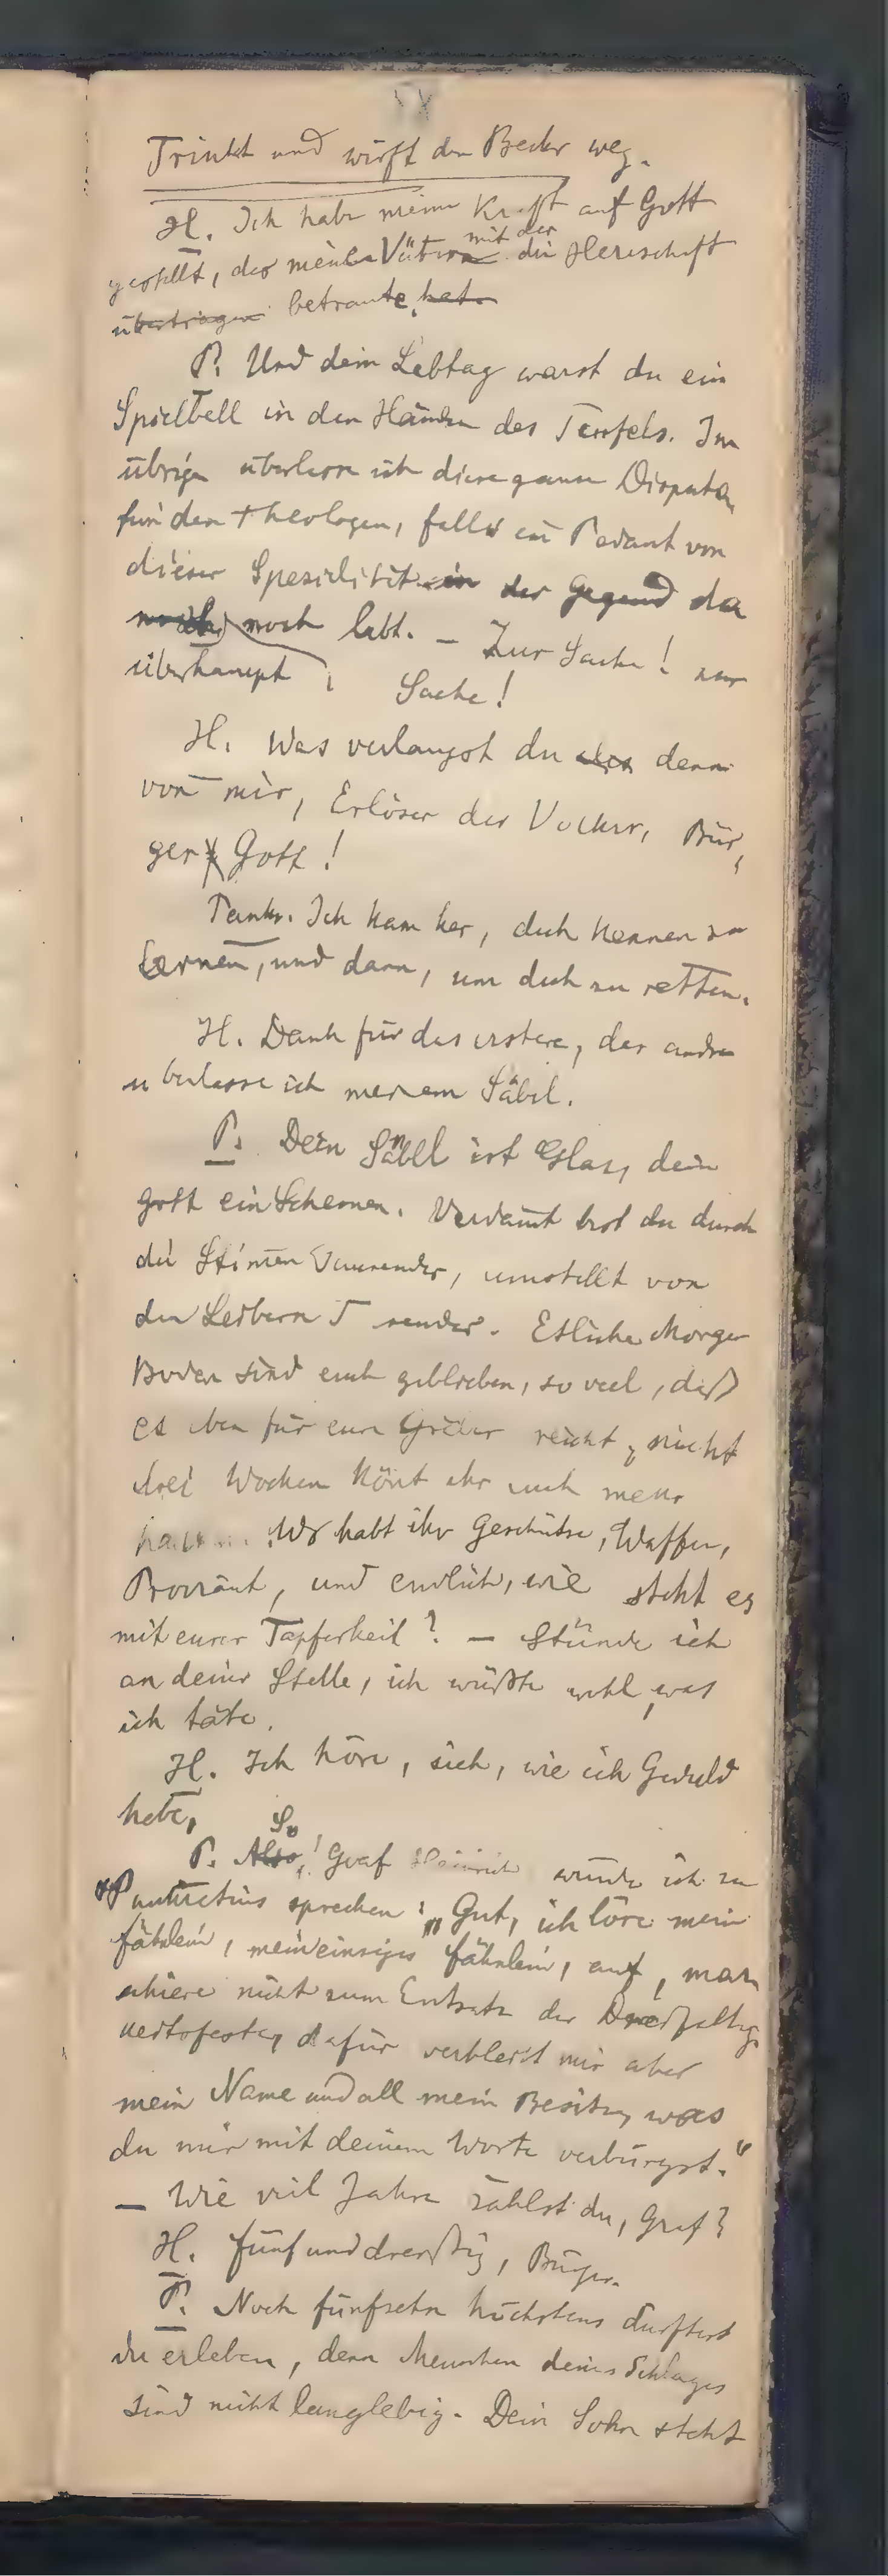 Trinkt und wirft den Becher weg.
H. Ich habe meine Kraft auf Gott
mit der
gestellt, der meine Vätern die Herrschaft
übertragen betraute, hat.
P. Und dein Lebtag warst du ein
Spielball in den Händen des Teufels. Im
übrigen überlasse ich diese ganze Disputa
für den Theologen, falls ein Pedant von
dieser Spezialität in der Gegend da
noch lebt. – Zur Sache! zur
überhaupt Sache!
H. Was verlangst du denn
von mir, Erlöser der Völker, Bür,
ger Gott!
Pankr. Ich kam her, dich kennen zu
lernen, und dann, um dich zu retten.
H. Dank für das erstere, das andre
überlasse ich meinem Säbel.
P. Dein Säbel ist Glas, dein
Gott ein Schemen. Verdamt bist du durch
die Stimen Tausender, umstellt von
den Leibern T sender. Etliche Morgen
Boden sind euch geblieben, so viel, daß
es eben für eure Gräber reicht, nicht
drei Wochen könt ihr euch mehr
halten. Wo habt ihr Geschütze, Waffen,
Proviant, und endlich, wie steht es
mit eurer Tapferkeit? – Stünde ich
an deiner Stelle, ich wüßte wohl, was
ich täte.
H. Ich höre, sieh, wie ich Geduld
habe,
So
P. Also,! Graf Heinrich würde ich zu
Pankratius sprechen: „Gut, ich löse mein
Fähnlein, mein einziges Fähnlein, auf, mar
schiere nicht zum Entsatz der Dreifaltig
keitsfeste, dafür verbleibt mir aber
mein Name und all mein Besitz, was
du mir mit deinem Worte verbürgst.“
– Wie viel Jahre zählst du, Graf?
H. Fünfunddreißig, Bürger.
P. Noch fünfzehn höchstens dürftest
du erleben, denn Menschen deines Schlages
sind nicht langlebig. Dein Sohn steht